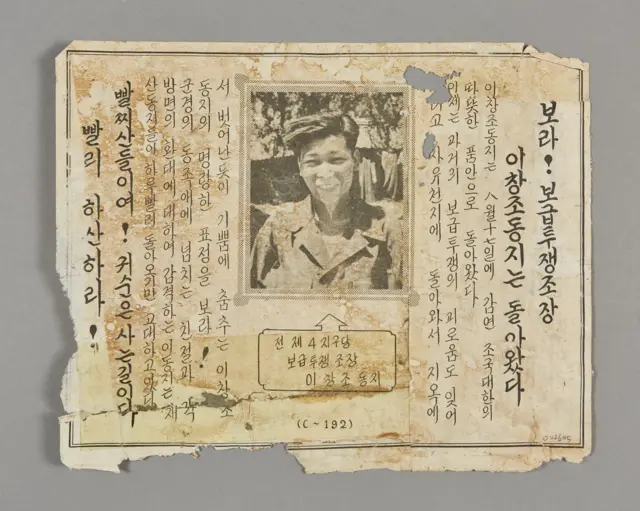 보라! 보급투쟁조장
이창조동지는 돌아왔다
이창조동지는 八월十七일에 감연 조국대한의
따뜻한 품안으로 돌아왔다
이제는 과거의 보급투쟁의 괴로움도 잊어
고 자유천지에 돌아와서 지옥에
서 벗어난듯이 기쁨에 춤추는 이창조
동지의 명랑한 표정을 보라!
군경의 동족애에 넘치는 친절과 각
방면의 환대에 대하여 감격하는 이동지는 재
산동지들이 하루빨리 돌아오기만 고대하고있다
빨찌산들이여! 귀순은 사는길이다
빨리 하산하라!
전 제4지구당
보급투쟁 조장
이 창조 동지
(C~192)